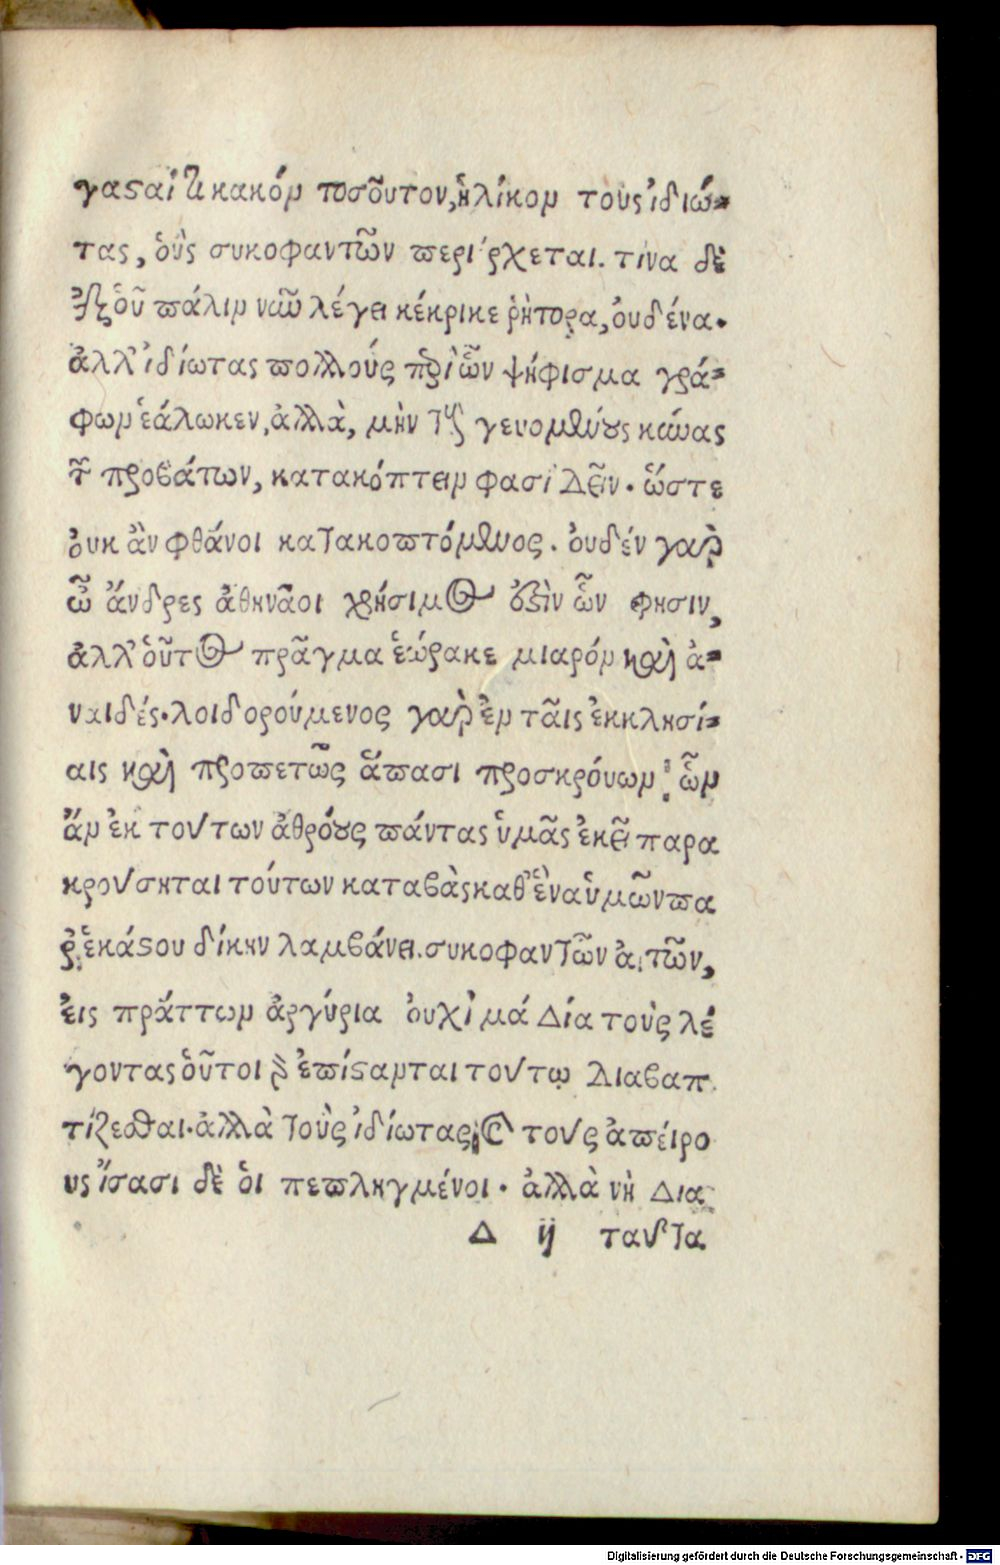 γασαί τι κακόν τοσοῦτον, ἡλίκον τοὺς ἰδιώ-
τας, ὁὺς συκοφαντῶν περιέρχεται. τίνα δὲ
ἐξ ὁῦ πάλιν νῶ λέγει κέκρικε ῥήτορα, ὀυδένα.
ἀλλ' ἰδίωτας πολλούς περὶ ὧν ψήφισμα γρά-
φων ἑάλωκεν, ἀλλὰ, μὴν τοὺς γευομένους κύνας
τῶν προβάτων, κατακόπτειν φασὶ δεῖν. ὥστε
ὀυκ ἂν φθάνοι κατακοπτόμενος. ὀυδέν γὰρ
ὦ ἄνδρες ἀθηναῖοι χρήσιμος ἐστὶν ὧν φησιν,
ἀλλ' ὁῦτος πρᾶγμα ἑώρακε μιαρόν καὶ ἀ-
ναιδές. λοιδορούμενος γὰρ ἐν ταῖς ἐκκλησί-
αις καὶ προπετῶς ἅπασι προσκρόυων: ὧν
ἄν ἐκ τούτων ἀθρόους πάντας ὑμᾶς ἐκεῖ παρα
κρούσηται τούτων καταβὰς καθ' ἕνα ὑμῶν πα
ρ' ἑκάστου δίκην λαμβάνει. συκοφαντῶν ἀιτῶν,
ἐισπράττων ἀργύρια ὀυχὶ μά Δία τοὺς λέ
γοντας ὁῦτοι γὰρ ἐπίστανται τούτῳ διαβαπ
τίζεσθαι. ἀλλὰ τοὺς ἰδίωτας, καὶ τους ἀπέιρο
υς ἴσασι δὲ ὁι πεπληγμένοι. ἀλλὰ νὴ Δια
Δ ij ταῦτα
Digitalisierung gefördert durch die Deutsche Forschungsgemeinschaft - DFG